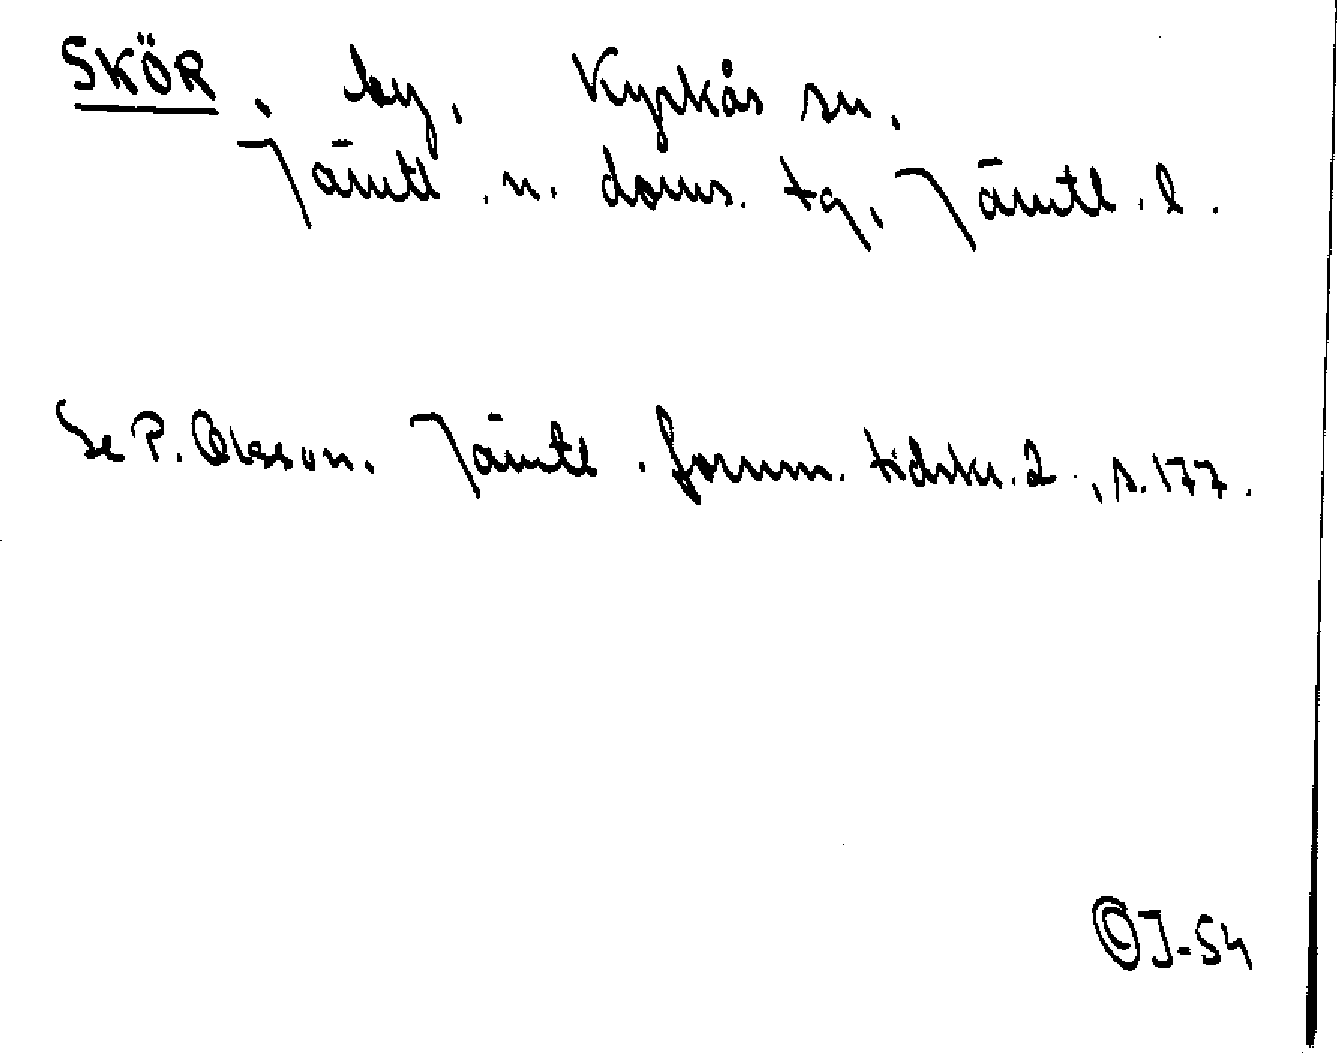 SKÖR, by, Kyrkås sn,
Jämtl. n. doms. tg, Jämtl. l.
Se P. Olsson. Jämtl. fornm. tidskr. 2, s. 177.
©J-54